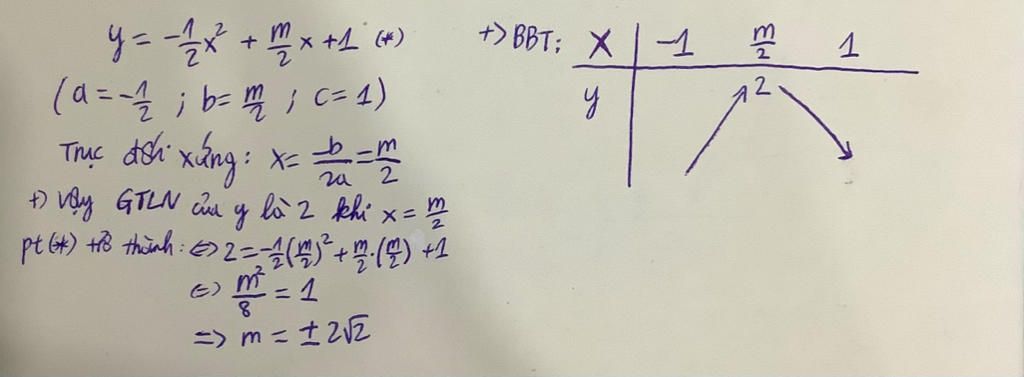 y = -1/2 x² + m/2 x + 1 (*)
(a = -1/2 ; b = m/2 ; c = 1)
Trục đối xứng: x = -b/2a = m/2
+) Vậy GTLN của y là 2 khi x = m/2
pt(*) trở thành: ⇔ 2 = -1/2(m/2)² + m/2.(m/2) + 1
⇔ m²/8 = 1
=> m = ±2√2
+) BBT:
x -1 m/2 1
y 2